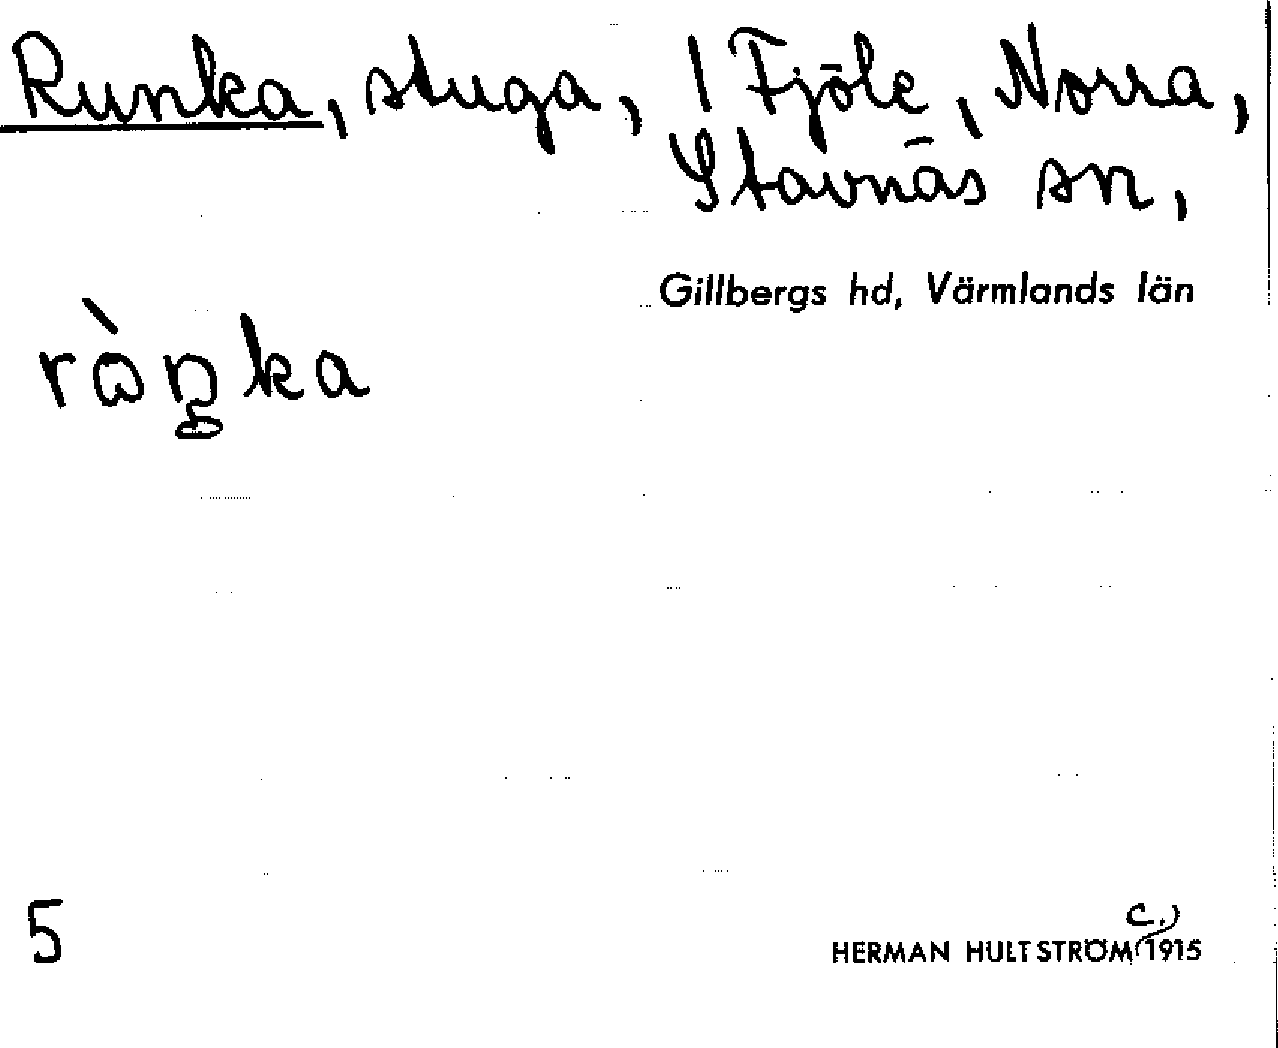 Runka, stuga, 1 Fjöle, Norra,
Stavnäs sn,
Gillbergs hd, Värmlands län
ròŋka
5
c.)
HERMAN HULTSTRÖM 1915